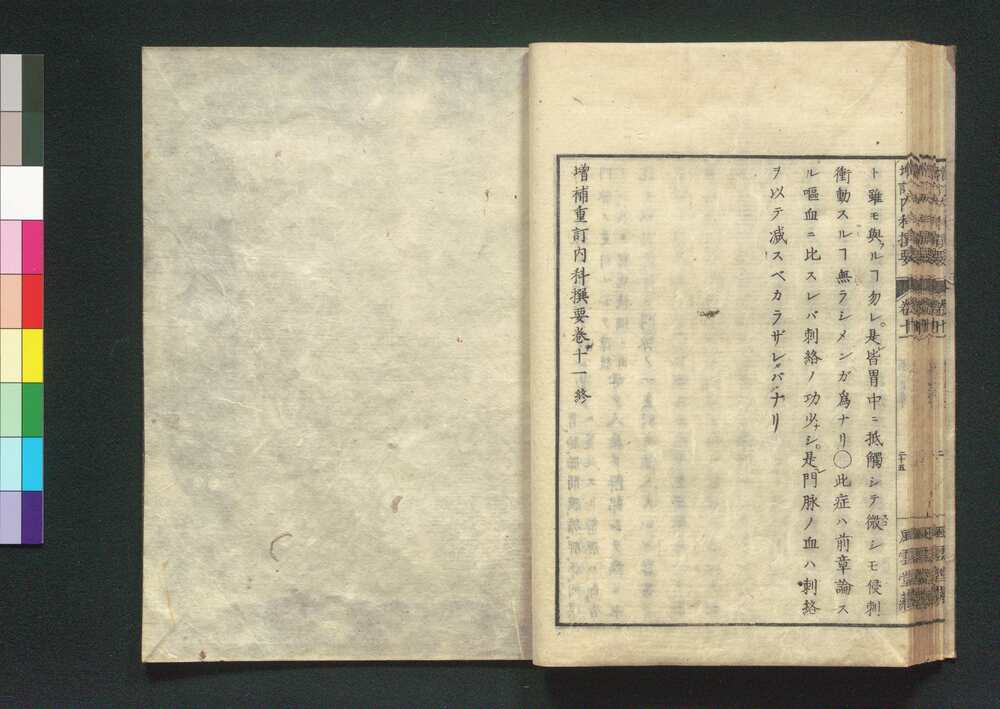 ト雖モ與フルヿ勿レ是皆胃中ニ抵觸シテ微シモ侵刺
衝動スルヿ無ラシメンガ爲ナリ〇此症ハ前章論ス
ル嘔血ニ比スレバ刺絡ノ功少シ是門脉ノ血ハ刺絡
ヲ以テ减スベカラザレバナリ
增補重訂内科撰要卷十一終